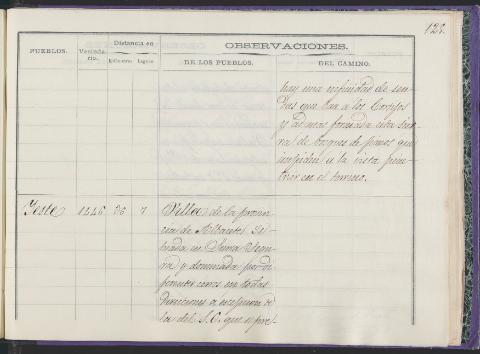 127.
PUEBLOS.
Vecindario.
Distancia en
Kilómetros
Leguas
OBSERVACIONES.
DE LOS PUEBLOS.
DEL CAMINO.
hay una infinidad de sen-
das que van a los Cortijos
y ademas formada esta sier-
ra de bosques de pinos que
impiden a la vista pene-
trar en el terreno.
Yeste 1446 7
Villa de la provin-
cia de Albacete si-
tuada en Segu-
ra y dominada por di-
ferentes cerros en todas
direcciones a escepcion de
la del S.O. que